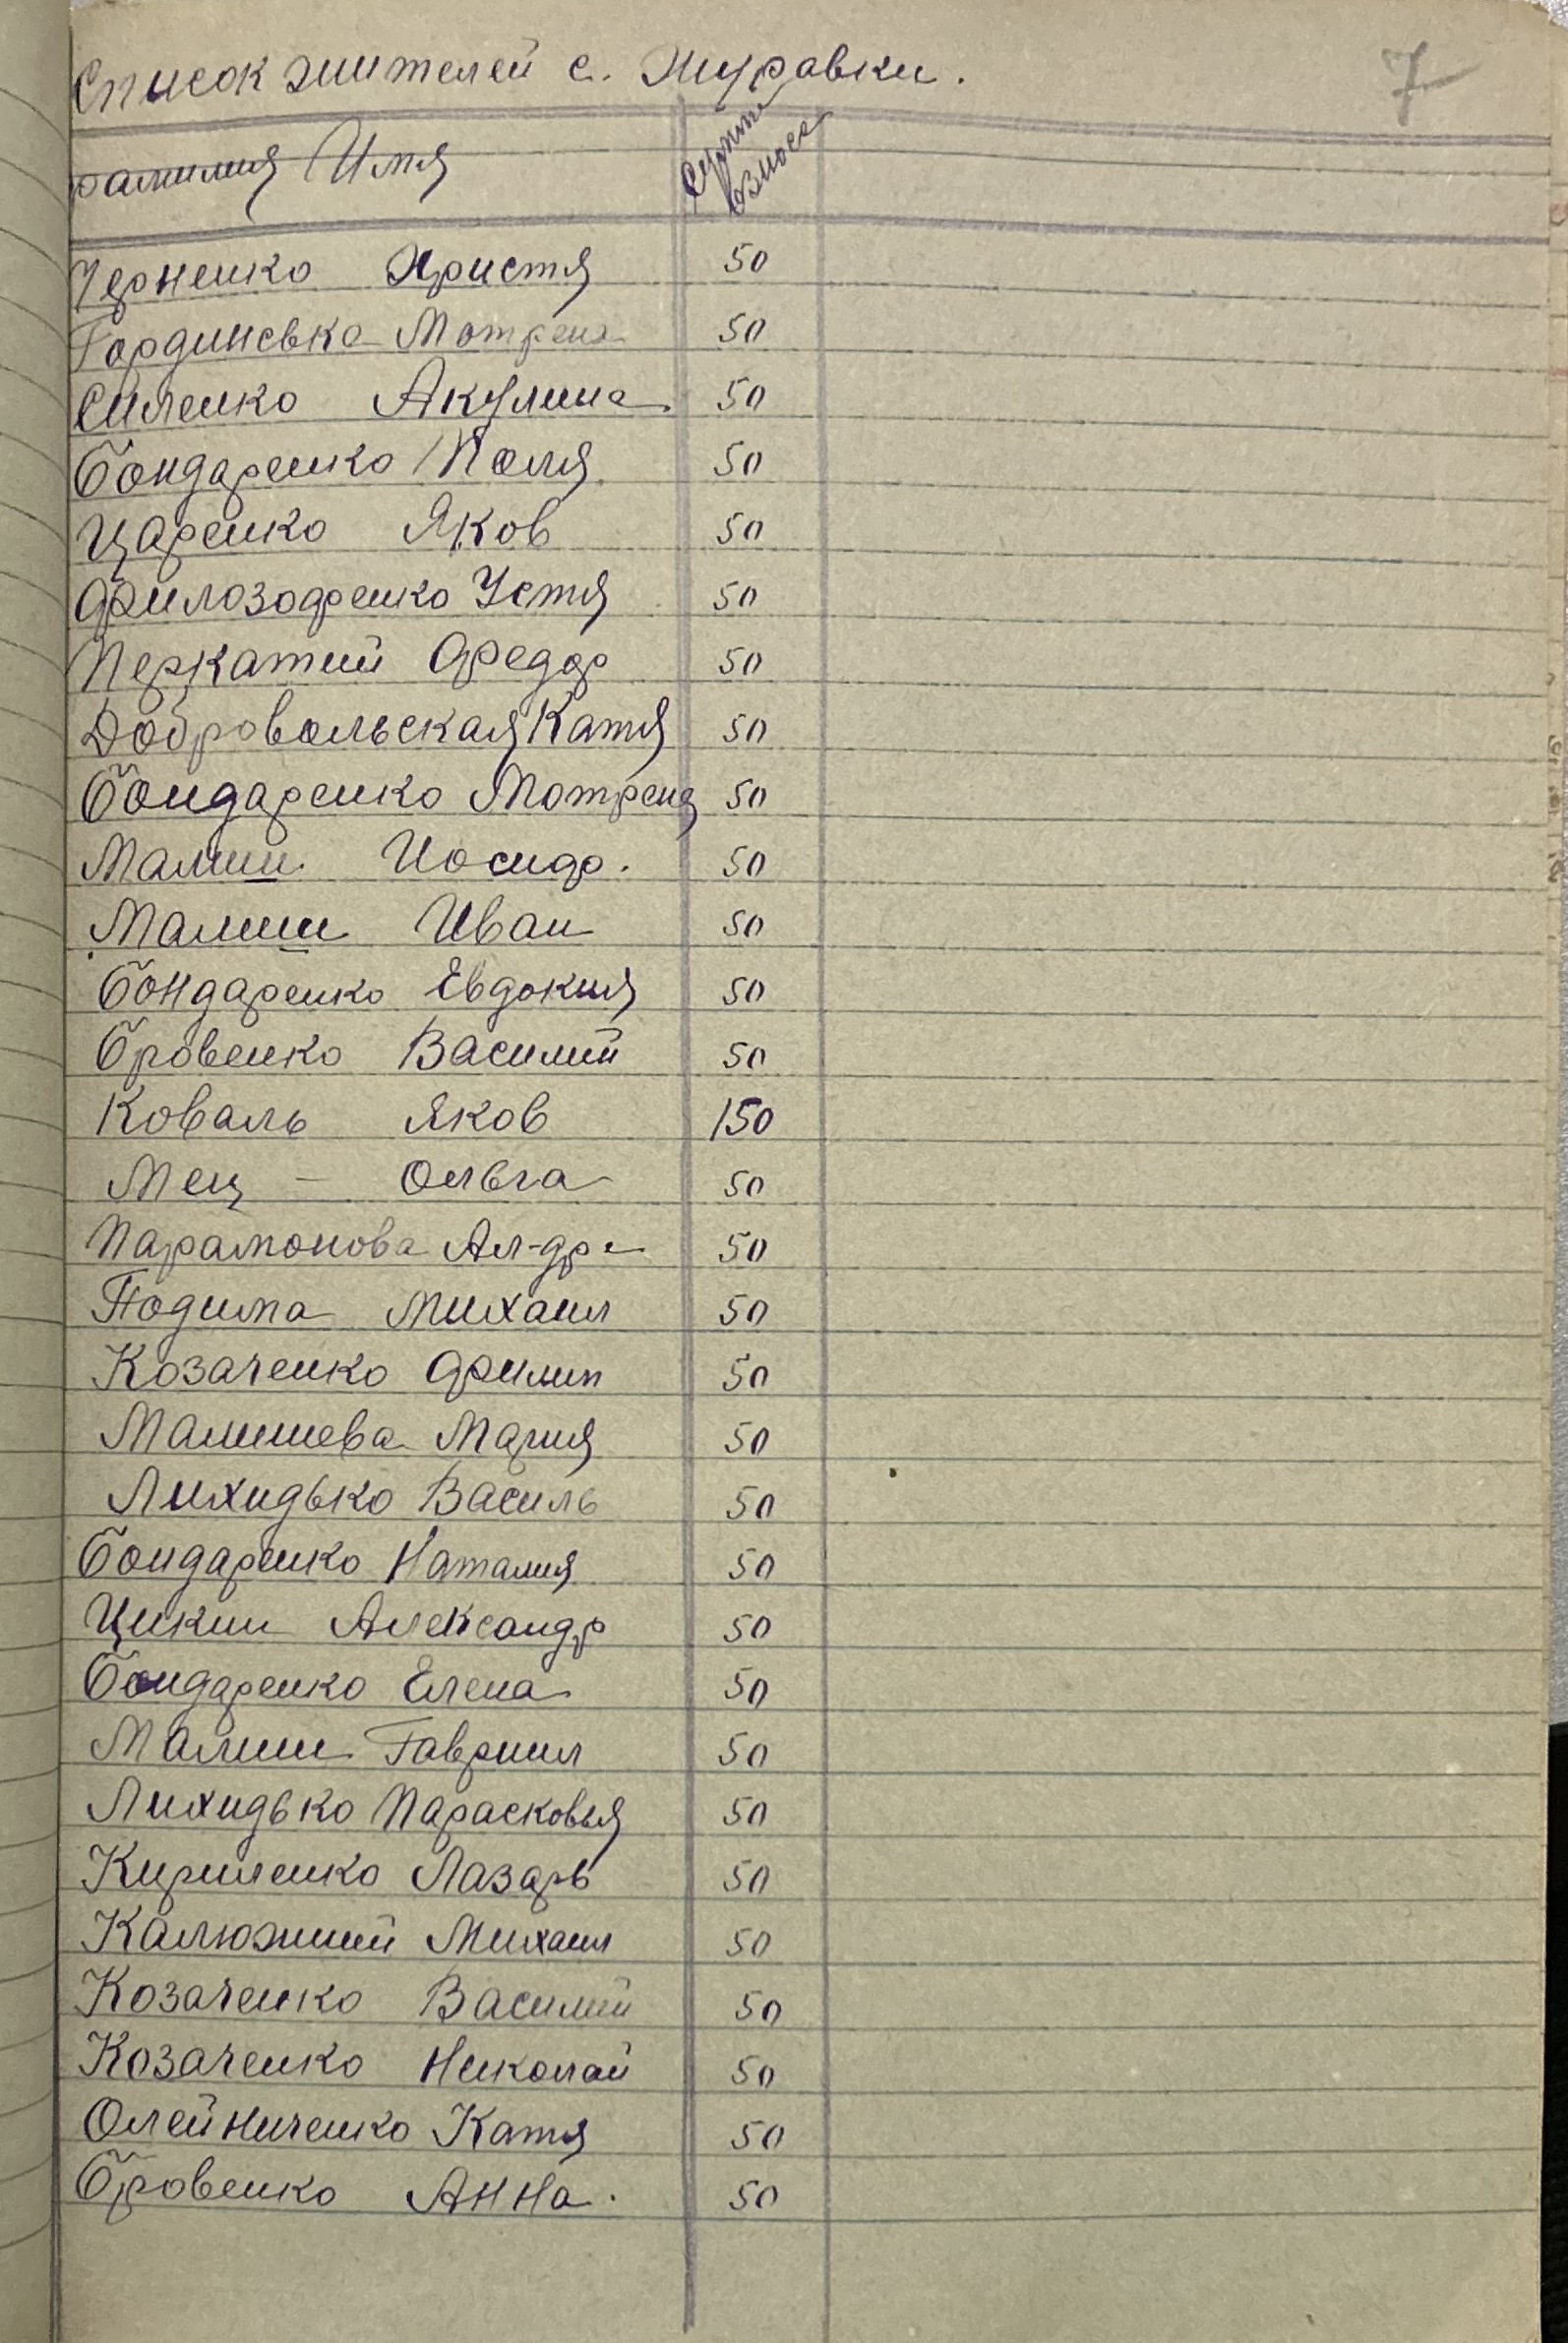 Список жителей с. Журавки.
7
фамилия Имя
Сумма взноса
Черненко Христя 50
Гординська Мотрена 50
Силенко Акулина 50
Бондаренко Поля 50
Царенко Яков 50
Филозофенко Устя 50
Перкатий Федор 50
Добровольская Катя 50
Бондаренко Мотреня 50
Малиш Иосиф. 50
Малиш Иван 50
Бондаренко Евдокия 50
Бровенко Василий 50
Коваль Яков 150
Мец – Ольга 50
Парамонова Ал-дра 50
Подима Михаил 50
Козаченко Филип 50
Малишева Мария 50
Лихидько Василь 50
Бондаренко Наталия 50
Цикин Александр 50
Бондаренко Елена 50
Малиш Гавриил 50
Лихидько Парасковья 50
Кириленко Лазарь 50
Калюжний Михаил 50
Козаченко Василий 50
Козаченко Николай 50
Олейниченко Катя 50
Бровенко Анна. 50